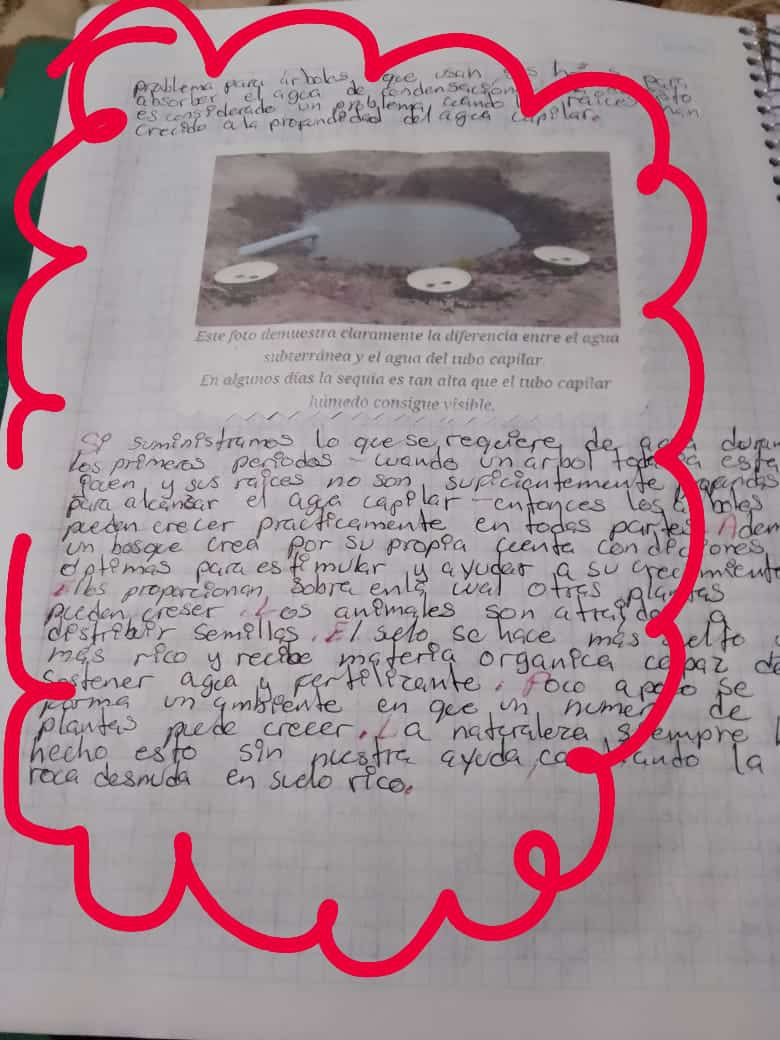 problema para árboles que usan sus para
absorber el agua de condensación
es considerado un problema cuando raíces han
crecido a la profundidad del agua capilar.
Este foto demuestra claramente la diferencia entre el agua
subterránea y el agua del tubo capilar
En algunos días la sequia es tan alta que el tubo capilar
húmedo consigue visible.
Si suministramos lo que se requiere de agua
los primeros periodos - cuando un árbol
joven y sus raices no son suficientemente
para alcanzar el agua capilar - entonces los
pueden crecer practicamente en todas partes.
un bosque crea por su propia cuenta condeciones
optimas para estimular y ayudar a su
Ellos proporcionan sobra en la cual otras plantas
pueden creser. Los animales son a
destribir semillas. El suelo se hace mas
más rico y recibe materia organica capaz de
Sostener agua y fertilizante. Poco a poco se
forma un ambiente en que un numero de
plantas puede crecer. La naturaleza siempre
hecho esto sin nuestra ayuda, la
roca desnuda en suelo rico.